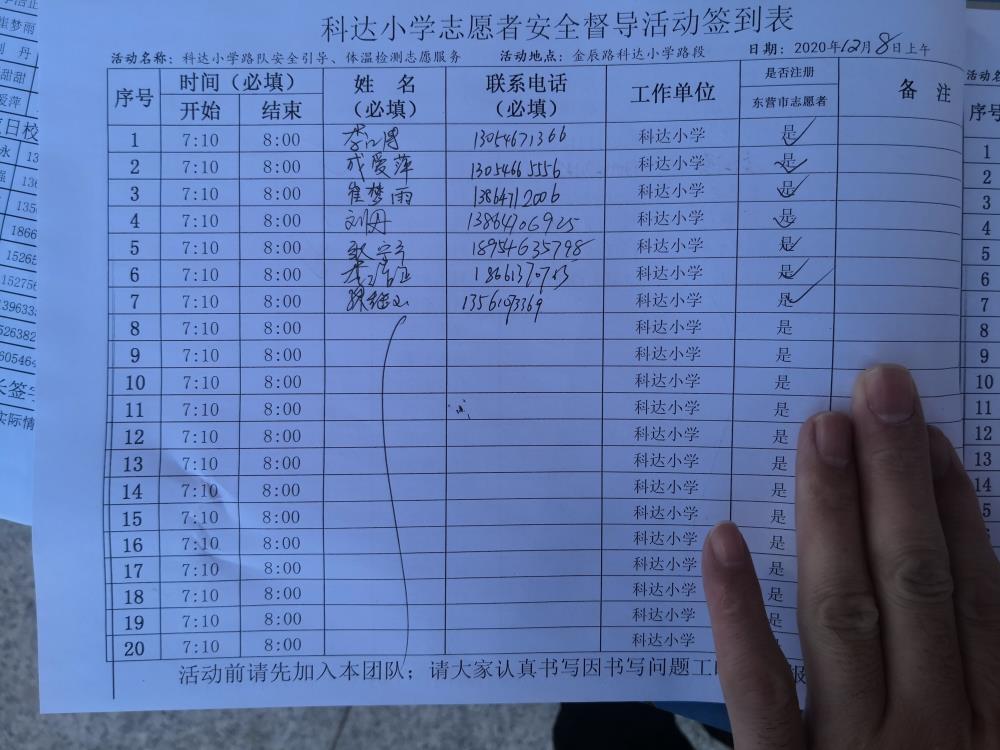 科达小学志愿者安全督导活动签到表
活动名称：科达小学路队安全引导、体温检测志愿服务 活动地点：金辰路科达小学路段 日期：2020年12月8日上午
序号 时间（必填） 姓 名（必填） 联系电话（必填） 工作单位 是否注册 备 注
开始 结束 东营市志愿者
1 7:10 8:00 13054671366 科达小学 是
2 7:10 8:00 成爱萍 13054665556 科达小学 是
3 7:10 8:00 崔梦雨 13864712006 科达小学 是
4 7:10 8:00 刘丹 13864706925 科达小学 是
5 7:10 8:00 18954635798 科达小学 是
6 7:10 8:00 科达小学 是
7 7:10 8:00 科达小学 是
8 7:10 8:00 科达小学 是
9 7:10 8:00 科达小学 是
10 7:10 8:00 科达小学 是
11 7:10 8:00 科达小学 是
12 7:10 8:00 科达小学 是
13 7:10 8:00 科达小学 是
14 7:10 8:00 科达小学 是
15 7:10 8:00 科达小学 是
16 7:10 8:00 科达小学 是
17 7:10 8:00 科达小学 是
18 7:10 8:00 科达小学 是
19 7:10 8:00 科达小学 是
20 7:10 8:00 科达小学 是
活动前请先加入本团队；请大家认真书写因书写问题工